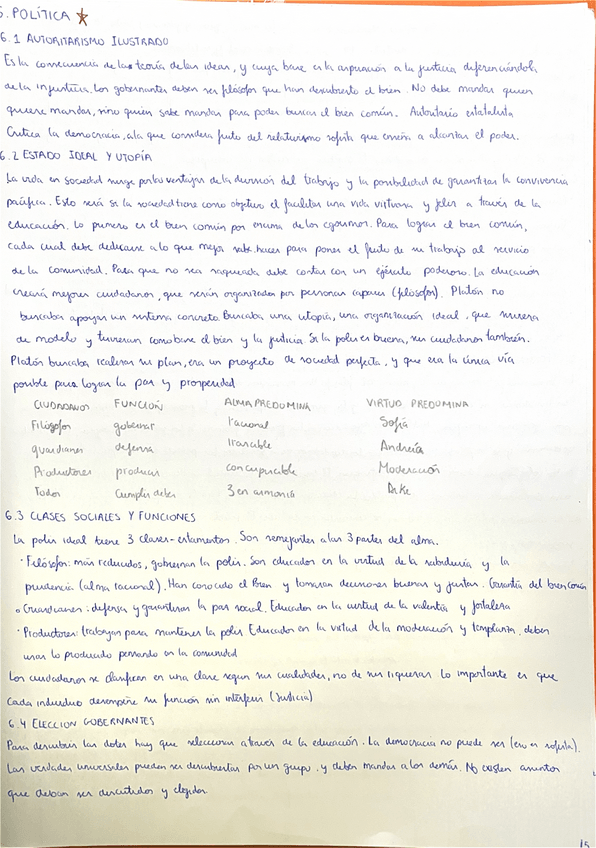 6. POLÍTICA
6.1 AUTORITARISMO ILUSTRADO
Es la consecuencia de la teoría de las ideas, y cuya base es la aspiración a la justicia diferenciándola
de la injusticia. Los gobernantes deben ser filósofos que han descubierto el bien. No debe mandar quien
quiere mandar, sino quien sabe mandar para poder buscar el bien común. Autoritario estatalista
Critica la democracia, a la que considera fruto del relativismo sofista que enseña a alcanzar el poder.
6.2 ESTADO IDEAL Y UTOPÍA
La vida en sociedad surge por las ventajas de la división del trabajo y la posibilidad de garantizar la convivencia
pacífica. Esto será si la sociedad tiene como objetivo el facilitar una vida virtuosa y feliz a través de la
educación. Lo primero es el bien común por encima de los egoísmos. Para lograr el bien común,
cada cual debe dedicarse a lo que mejor sabe hacer para poner el fruto de su trabajo al servicio
de la comunidad. Para que no sea saqueada debe contar con un ejército poderoso. La educación
creará mejores ciudadanos, que serán organizados por personas capaces (filósofos). Platón no
buscaba apoyar un sistema concreto. Buscaba una utopía, una organización ideal, que sirviera
de modelo y tuvieran como base el bien y la justicia. Si la polis es buena, sus ciudadanos también.
Platón buscaba realizar su plan, era un proyecto de sociedad perfecta, y que era la única vía
posible para lograr la paz y prosperidad
CIUDADANOS FUNCIÓN ALMA PREDOMINA VIRTUD PREDOMINA
Filósofos gobernar racional Sofía
guardianes defensa Irascible Andreia
Productores producir concupiscible Moderación
Todos Cumplir deber 3 en armonia Dike
6.3 CLASES SOCIALES Y FUNCIONES
La polis ideal tiene 3 clases-estamentos. Son semejantes a las 3 partes del alma.
· Filósofos: más reducidos, gobiernan la polis. Son educados en la virtud de la sabiduría y la
prudencia (alma racional). Han conocido el Bien y tomaran decisiones buenas y justas. Garantía del bien común
· Guardianes: defensa y garantizar la paz social. Educados en la virtud de la valentía y fortaleza
· Productores: trabajan para mantener la polis Educados en la virtud de la moderación y templanza. deben
usar lo producido pensando en la comunidad
Los ciudadanos se clasifican en una clase según sus cualidades, no de sus riquezas lo importante es que
cada individuo desempeñe su función sin interferir (Justicia)
6.4 ELECCION GOBERNANTES
Para descubrir las dotes hay que seleccionar a través de la educación. La democracia no puede ser (eso es sofista).
Las verdades universales pueden ser descubiertas por un grupo, y deben mandar a los demás. No existen asuntos
que deban ser discutidos y elegidos
15